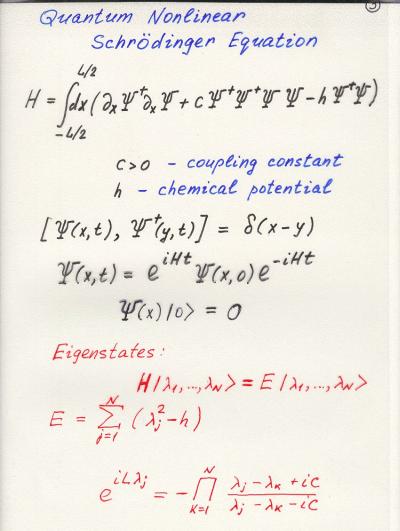 ③
Quantum Nonlinear
Schrödinger Equation
H = ∫_{-L/2}^{L/2} dx (∂ₓΨ†∂ₓΨ + cΨ†Ψ†ΨΨ - hΨ†Ψ)
c>0 - coupling constant
h - chemical potential
[Ψ(x,t), Ψ†(y,t)] = δ(x-y)
Ψ(x,t) = e^{iHt} Ψ(x,0) e^{-iHt}
Ψ(x)|0> = 0
Eigenstates:
H|λ₁,...,λ_N> = E|λ₁,...,λ_N>
E = Σ_{j=1}^{N} (λ_j² - h)
e^{iLλ_j} = - ∏_{K=1}^{N} (λ_j - λ_K + ic)/(λ_j - λ_K - ic)